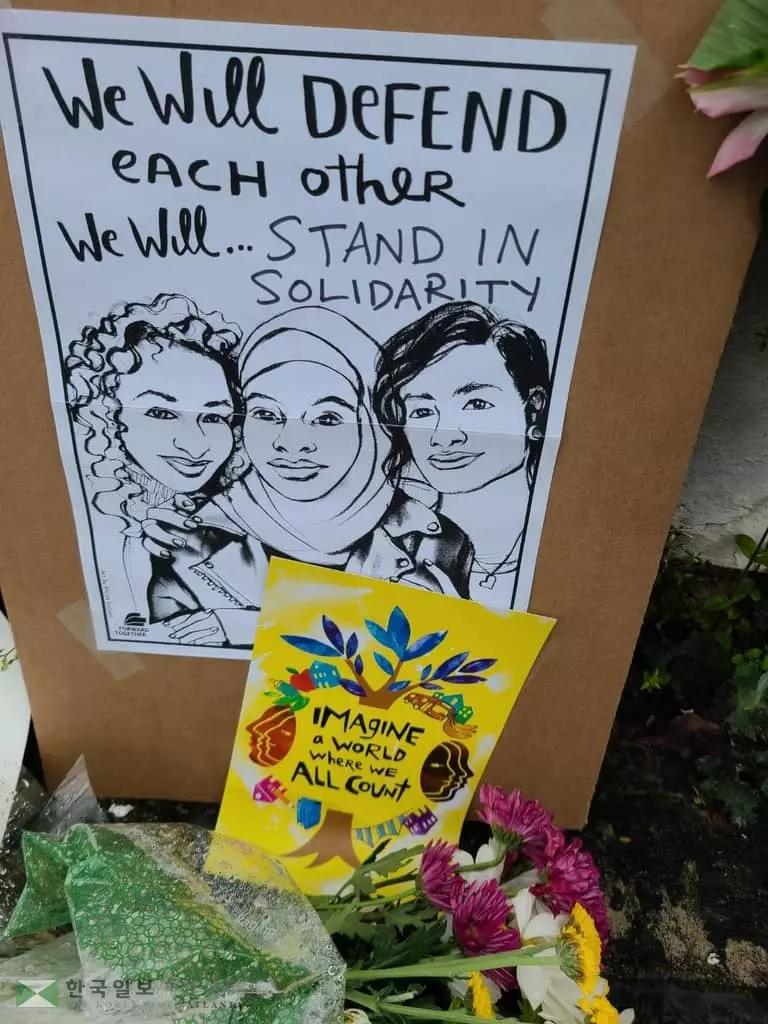 We Will DEFEND
EACH other
We Will... STAND IN
SOLIDARITY
FORWARD
TOGETHER
IMAGINE
a WORLD
where we
ALL COUNT
한국일보
ATLANTA